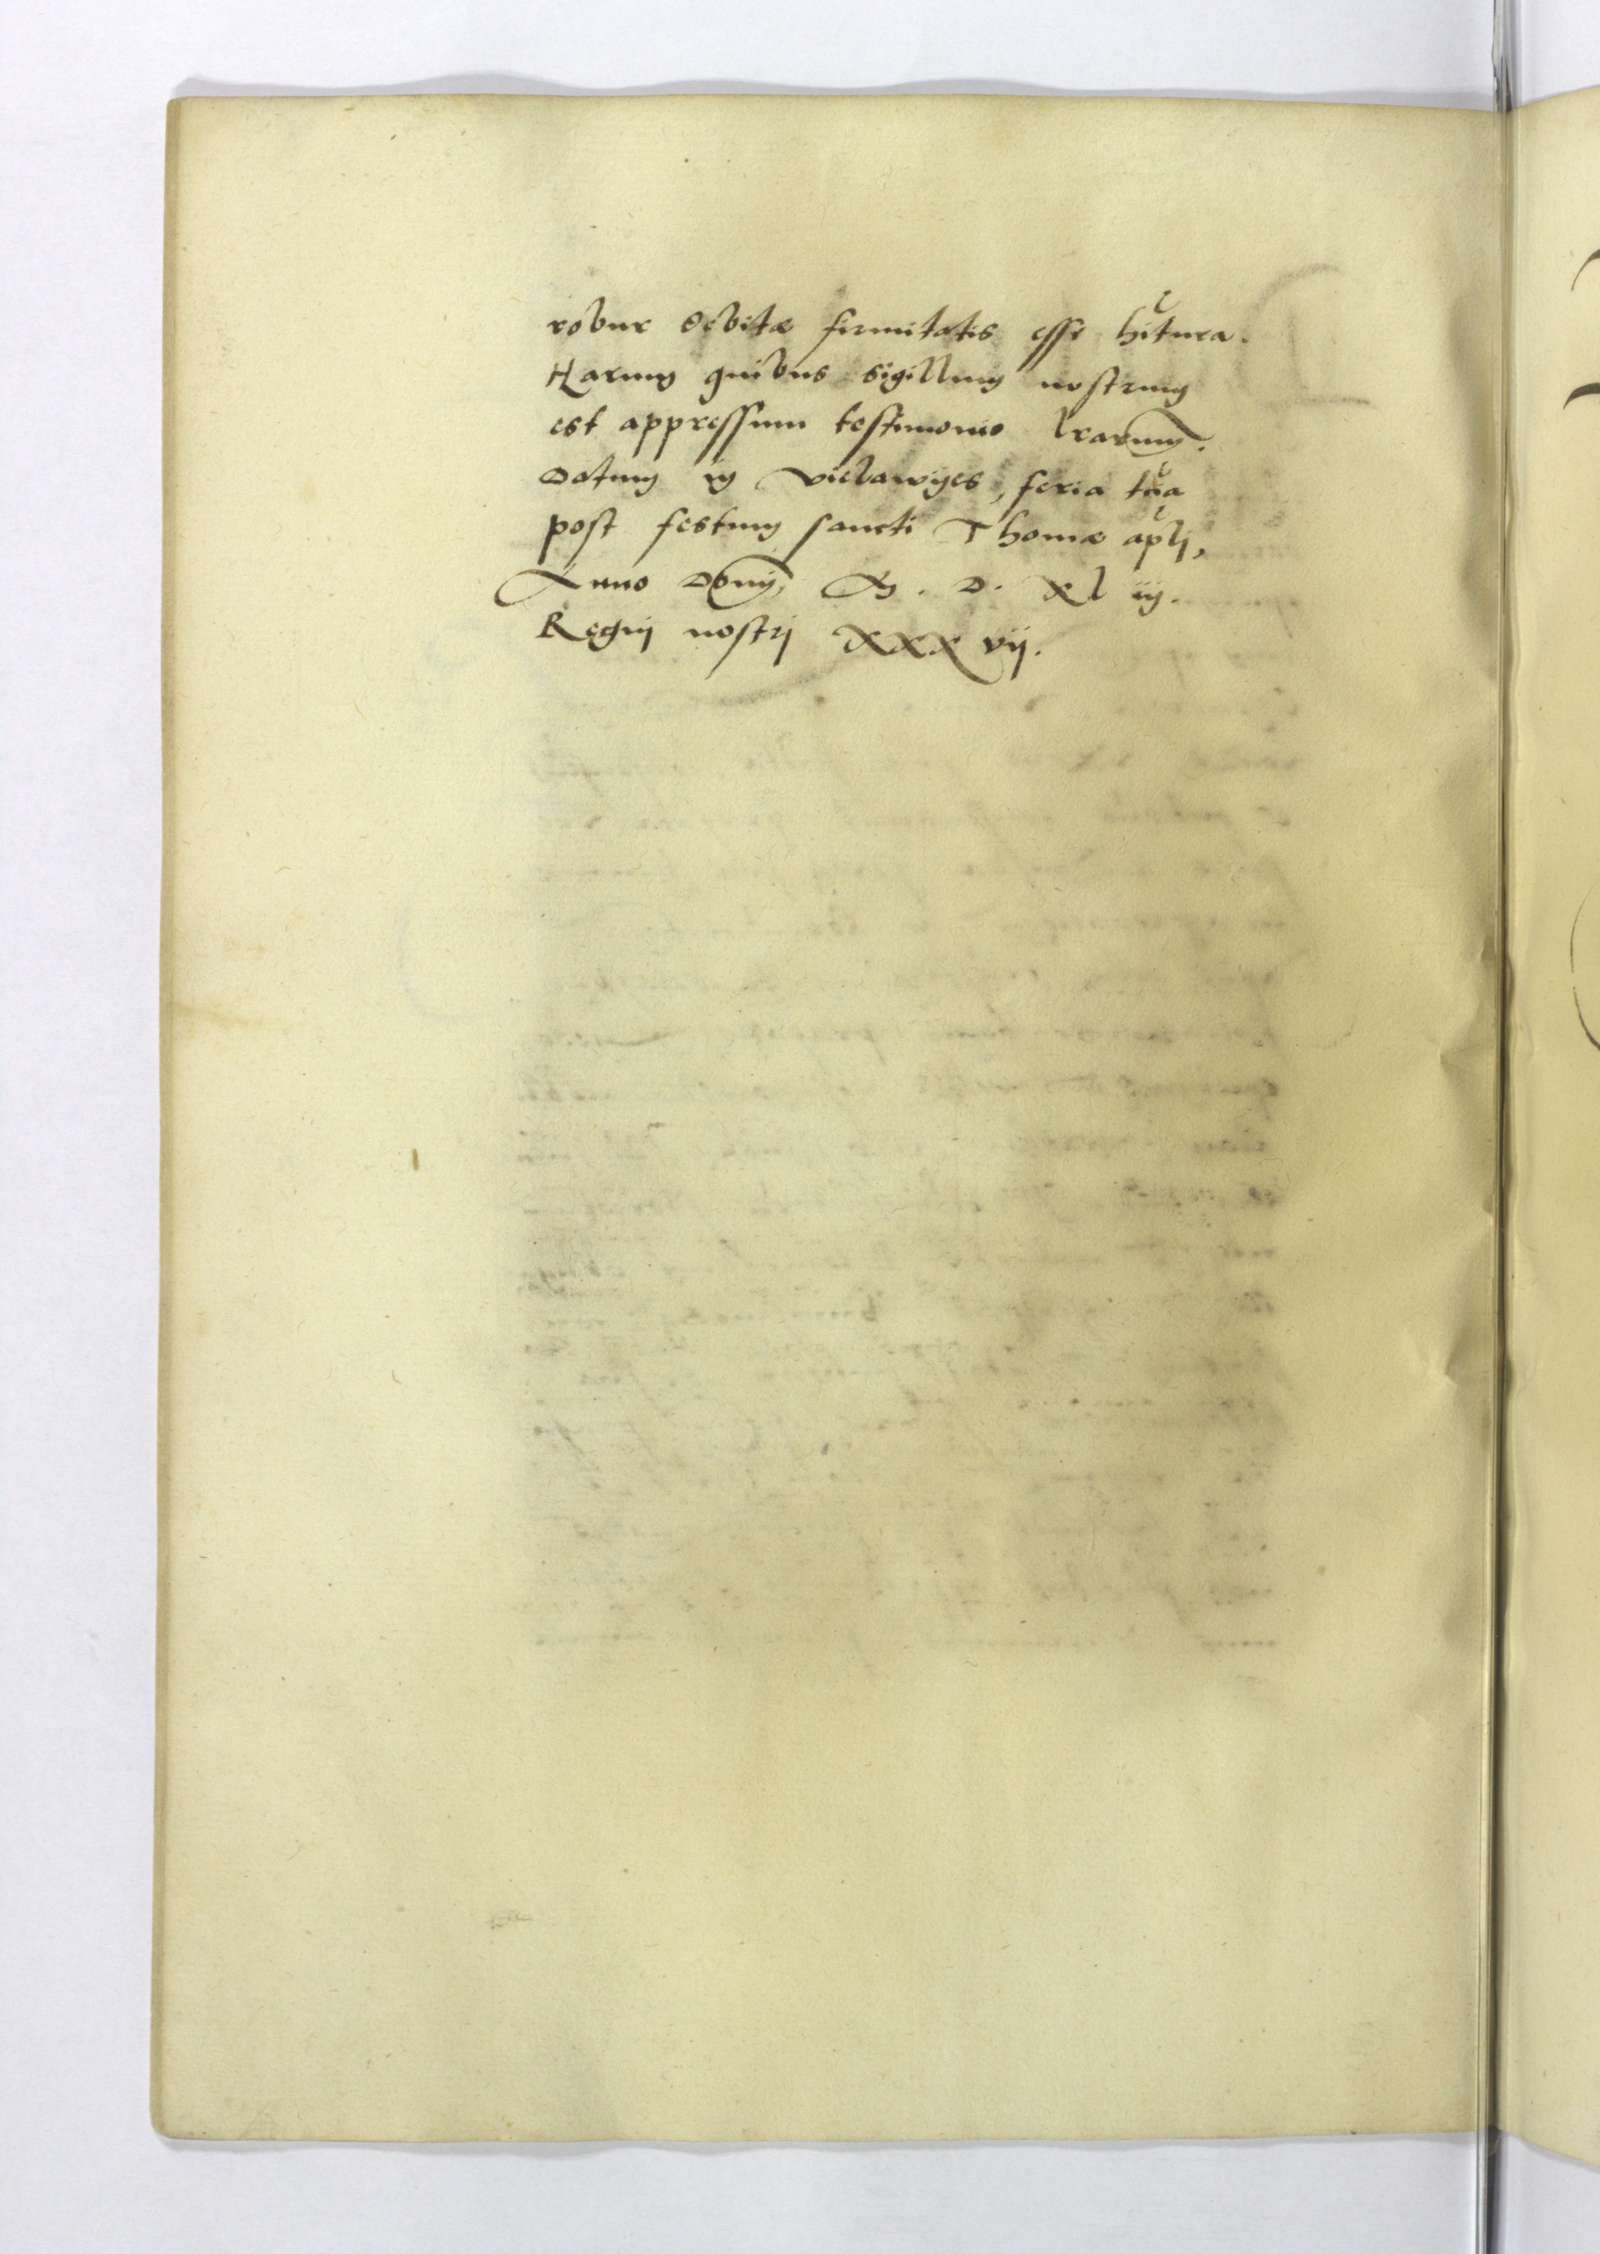 robur debitæ firmitatis esse hitura.
Harum quibus sigillum nostrum
est appressum testimonio lrarum.
Datum in Vielawyes, feria tua
post festum sancti Thomæ apli,
Anno Domj, M. D. XL iij.
Regnj nostrj XXX vij.